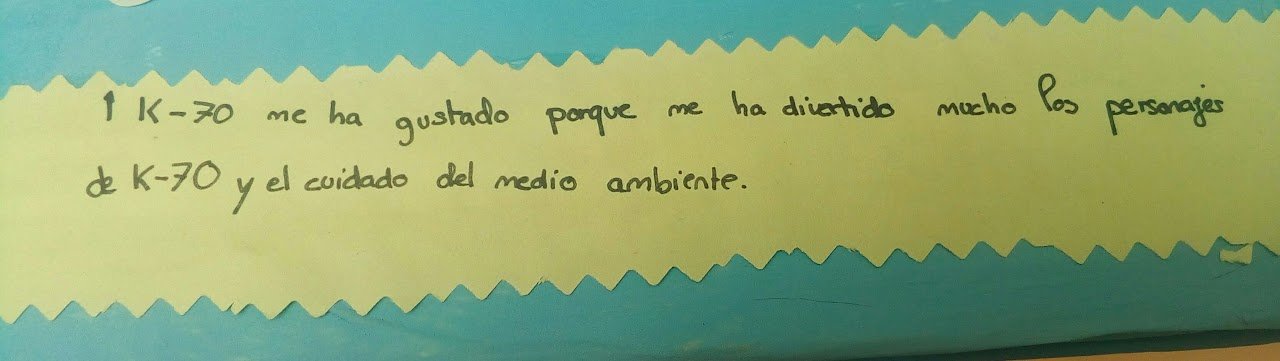 1 K-70 me ha gustado porque me ha divertido mucho los personajes
de K-70 y el cuidado del medio ambiente.